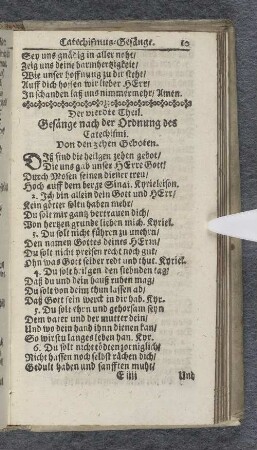 Catechismus-Gesänge.
Sey uns gnädig in aller noht/
Zeig uns deine barmhertzigkeit/
Wie unser hoffnung zu dir steht/
Auff dich hoffen wir lieber HErr/
In schanden laß uns nimmermehr/ Amen.
Der vierdte Theil.
Gesänge nach der Ordnung des
Catechismi.
Von den zehen Geboten.
DIß sind die heilgen zehen gebot/
Die uns gab unser HErre Gott/
Durch Mosen seinen diener treu/
Hoch auff dem berge Sinai. Kyrieleison.
2. Ich bin allein dein Gott und HErr/
Kein götter soltu haben mehr/
Du solt mir gantz vertrauen dich/
Von hertzen grunde lieben mich. Kyriel.
3. Du solt nicht führen zu unehrn/
Den namen Gottes deines HErrn/
Du solt nicht preisen recht noch gut/
Ohn was Gott selber redt und thut. Kyriel.
4. Du solt heilgen den siebnden tag/
Daß du und dein hauß ruhen mag/
Du solt von deim thun lassen ab/
Daß Gott sein werck in dir hab. Kyr.
5. Du solt ehrn und gehorsam seyn
Dem vater und der mutter dein/
Und wo dein hand ihnn dienen kan/
So wirstu langes leben han. Kyr.
6. Du solt nicht tödten zorniglich/
Nicht hassen noch selbst rächen dich/
Gedult haben und sanfften muht/
E iiij Und